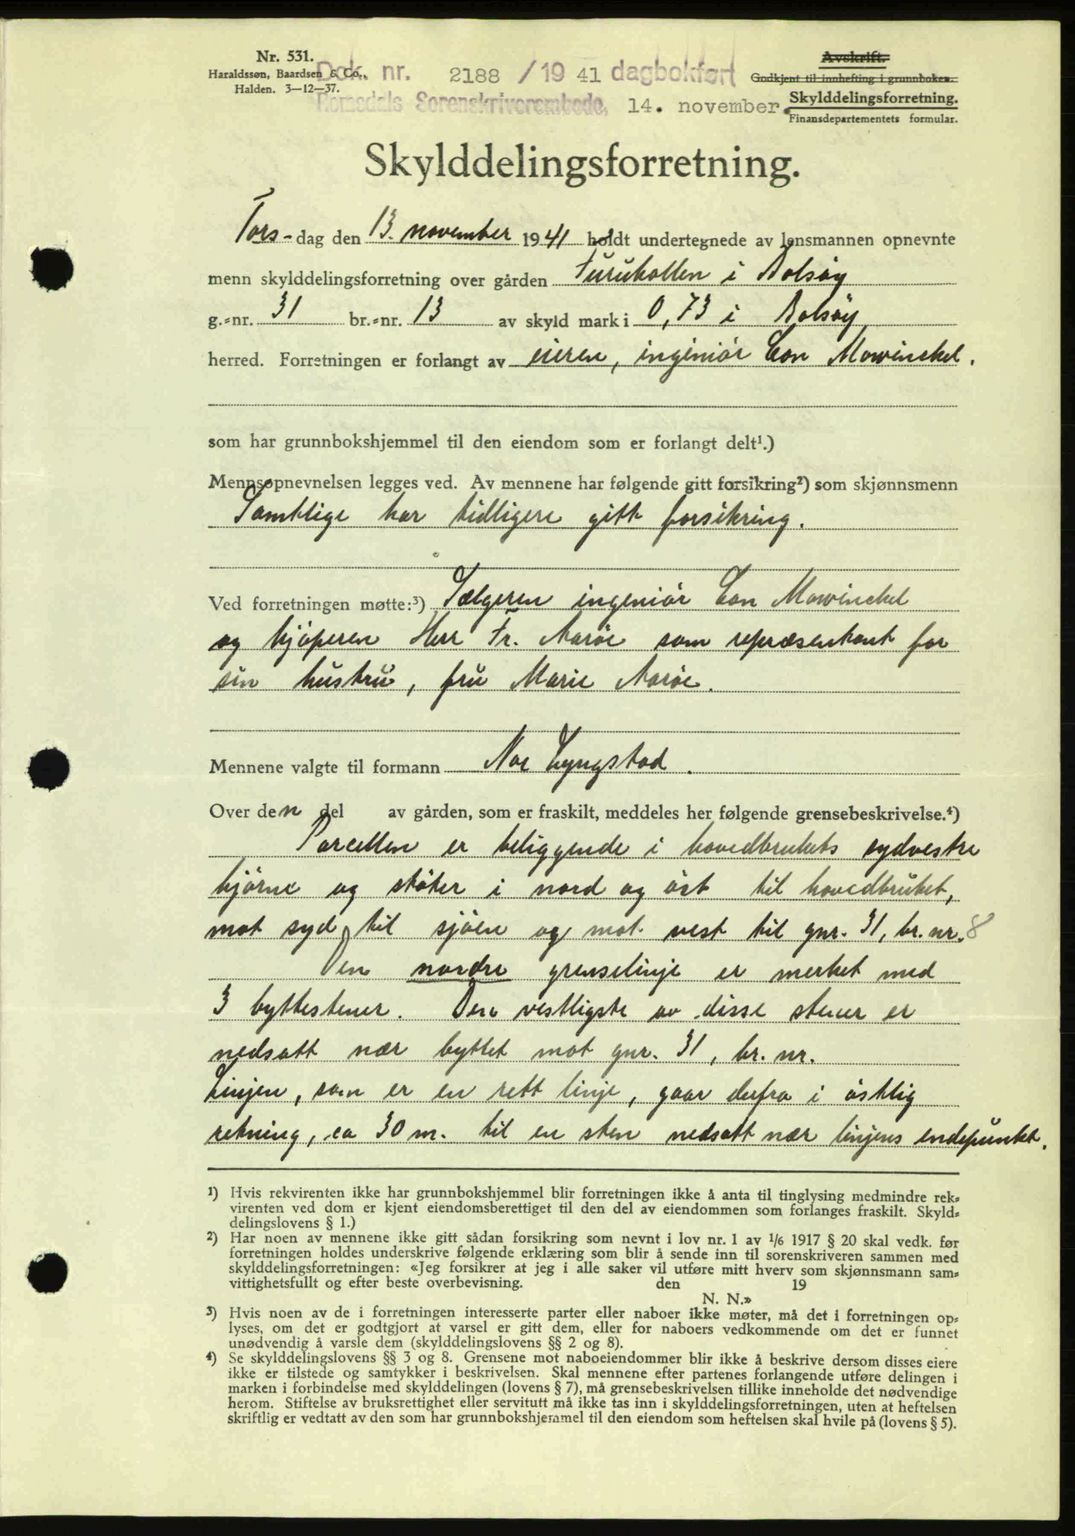 Nr. 531.
Haraldssøn, Baardsen & Co.,
Halden. 3—12—37.
Dok. nr. 2188 / 19 41 dagbokført
Romsdals Sorenskriverembede, 14. november.
Avskrift.
Godkjent til innhefting i grunnboken.
Skylddelingsforretning.
Finansdepartementets formular.
Skylddelingsforretning.
Tors-dag den 13. november 1941 holdt undertegnede av lensmannen opnevnte
menn skylddelingsforretning over gården Furukollen i Bolsøy
g.=nr. 31 br.=nr. 13 av skyld mark i 0,73 i Bolsöy
herred. Forretningen er forlangt av eieren, ingeniör Con Mowinckel.
som har grunnbokshjemmel til den eiendom som er forlangt delt¹.)
Mennsopnevnelsen legges ved. Av mennene har følgende gitt forsikring²) som skjønnsmenn
Samtlige har tidligere gitt forsikring.
Ved forretningen møtte:³) Sælgeren ingeniör Con Mowinckel
og kjöperen Herr Fr. Aaröe som repræsentant for
sin hustru, fru Marie Aaröe.
Mennene valgte til formann Lyngstad.
Over den del av gården, som er fraskilt, meddeles her følgende grensebeskrivelse.⁴)
Parcellen er beliggende i hovedbrukets sydvestre
hjörne og stöter i nord og öst til hovedbruket,
mot syd til sjöen og mot vest til gnr. 31, br. nr. 8
Den nordre grenselinje er merket med
3 byttestener. Den vestligste av disse stener er
nedsatt nær byttet mot gnr. 31, br. nr.
Linjen, som er en rett linje, gaar derfra i östlig
retning, ca 30 m. til en sten nedsatt nær linjens endepunkt.
¹) Hvis rekvirenten ikke har grunnbokshjemmel blir forretningen ikke å anta til tinglysing medmindre rek=
virenten ved dom er kjent eiendomsberettiget til den del av eiendommen som forlanges fraskilt. Skyld=
delingslovens § 1.)
²) Har noen av mennene ikke gitt sådan forsikring som nevnt i lov nr. 1 av 1/6 1917 § 20 skal vedk. før
forretningen holdes underskrive følgende erklæring som blir å sende inn til sorenskriveren sammen med
skylddelingsforretningen: «Jeg forsikrer at jeg i alle saker vil utføre mitt hverv som skjønnsmann sam=
vittighetsfullt og efter beste overbevisning. den 19
N. N.»
³) Hvis noen av de i forretningen interesserte parter eller naboer ikke møter, må det i forretningen op=
lyses, om det er godtgjort at varsel er gitt dem, eller for naboers vedkommende om det er funnet
unødvendig å varsle dem (skylddelingslovens §§ 2 og 8).
⁴) Se skylddelingslovens §§ 3 og 8. Grensene mot naboeiendommer blir ikke å beskrive dersom disses eiere
ikke er tilstede og samtykker i beskrivelsen. Skal mennene efter partenes forlangende utføre delingen i
marken i forbindelse med skylddelingen (lovens § 7), må grensebeskrivelsen tillike inneholde det nødvendige
herom. Stiftelse av bruksrettighet eller servitutt må ikke tas inn i skylddelingsforretningen, uten at heftelsen
skriftlig er vedtatt av den som har grunnbokshjemmel til den eiendom som heftelsen skal hvile på (lovens § 5).